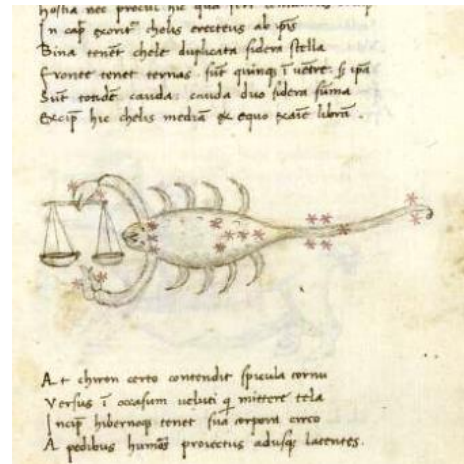 hostia nec procul hic
In cap exorit chelis erectus ab ipis
Bina tenet chele duplicata sidera stella
Fronte tenet ternas sūt quinqʒ ī uētre ipa
Sūt totidē cauda cauda duo sidera sūma
Excip hic chelis mediā ex equo libram.
At chiron certo contendit spicula cornu
Versus ī occasum ueluti q mittere tela
Incip hibernoqʒ tenet sua corpora circo
A pedibus humōs proiectus adusqʒ latentes.